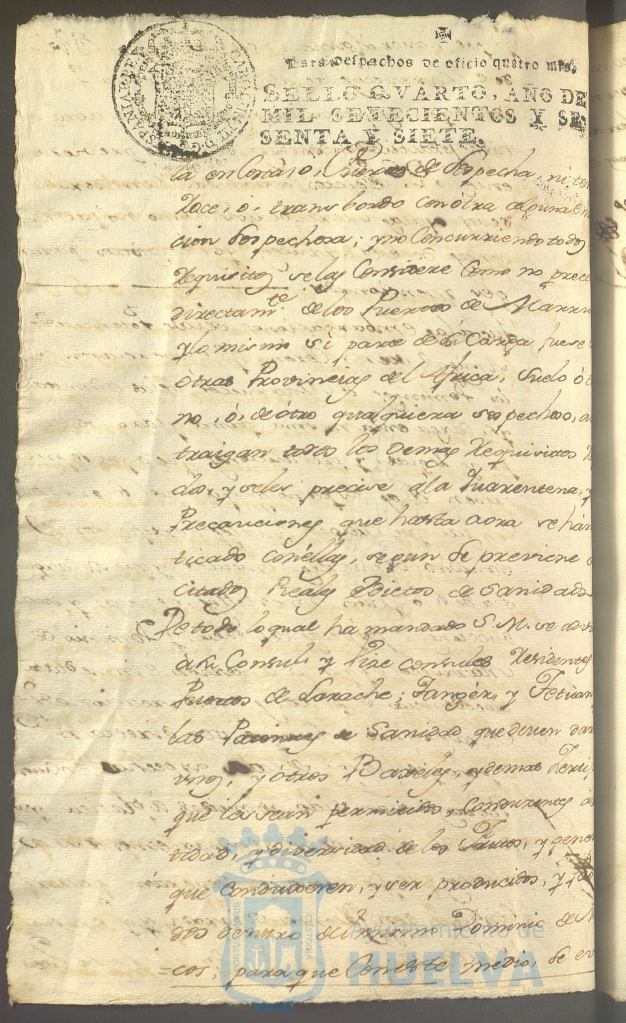 Para despachos de oficio quatro mrs.
SELLO QVARTO, AÑO DE
MIL SETECIENTOS Y SE
SENTA Y SIETE.
de Sospecha, ni
Roce, o, transbordo con otra alguna
cion Sospechosa; y no Concurriendo todos
Requisitos se las Considere Como no prece
directamte. de los Puertos de Marru
y lo mismo si parte de la Carga fuese
otras Provincias del Africa, suelo ó
no, o, de otro qualquiera sospechoso,
traigan todos los demas Requisitos
dos, y seles precise ala Quarentena, y
Precauciones que hasta aora se han
ticado con ellas, segun se previene
citados Reales Edictos de Sanidad
De todo lo qual ha mandado S. M. se
à su Consul y Vize consules Residentes
Puertos de Larache, Tanger, y Tetuan
las Patentes de Sanidad que deven dar
y otros Baxeles, y demas
que les sean permitidos, Conducentes à
tidad, y diversidad de los Frutos, y gene
que Conduxeren, y ser producidos, y
dos dentro del mismo Dominio de
cos; para que Con este medio, se
Ayuntamiento de
HUELVA